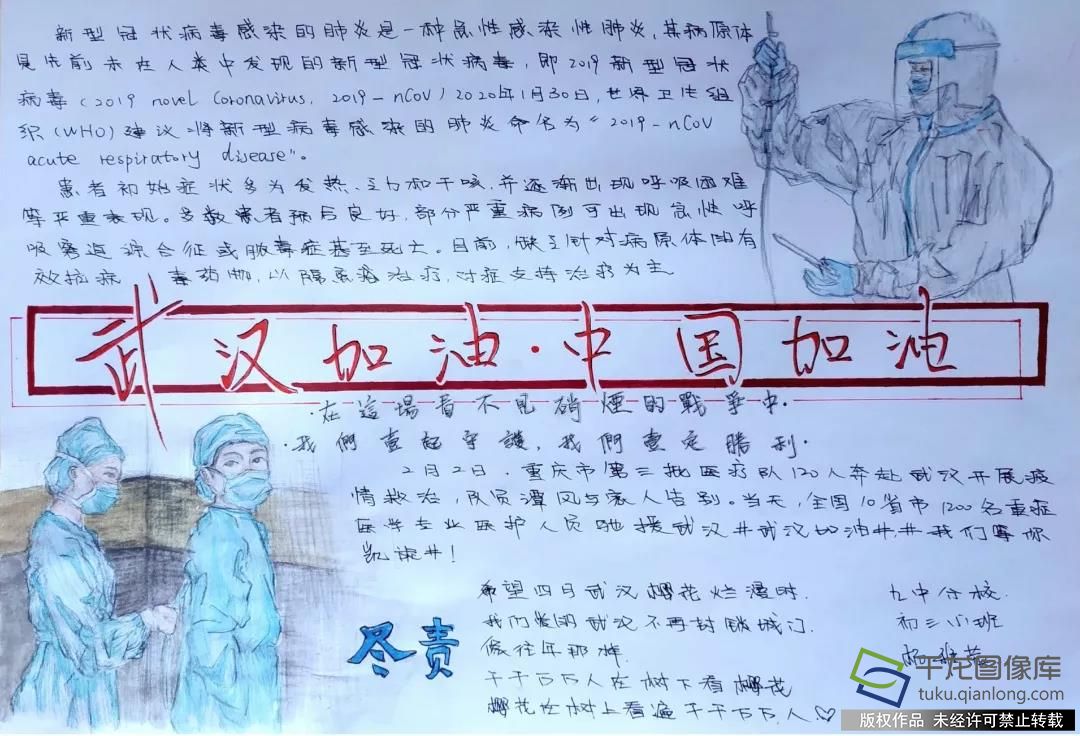 新型冠状病毒感染的肺炎是一种急性感染性肺炎,其病原体
是先前未在人类中发现的新型冠状病毒,即2019新型冠状
病毒(2019 novel Coronavirus, 2019-nCoV)2020年1月30日,世界卫生组
织(WHO)建议将新型病毒感染的肺炎命名为"2019-nCoV
acute respiratory disease"。
患者初始症状多为发热、乏力和干咳,并逐渐出现呼吸困难
等严重表现。多数患者预后良好,部分严重病例可出现急性呼
吸窘迫综合征或脓毒症甚至死亡。目前,缺乏针对病原体的有
效抗病 毒药物,以隔离治疗,对症支持治疗为主
武汉加油·中国加油
·在這場看不見硝煙的戰爭中·
·我們壹起守護,我們壹定勝利·
2月2日,重庆市第三批医疗队120人奔赴武汉开展疫
情救治,队员潭风与家人告别。当天,全国10省市1200名重症
医学专业医护人员驰援武汉#武汉加油##我们等你
凯旋#!
希望四月武汉樱花烂漫时
我们的武汉不再封锁城门
像往年那样
千千万万人在树下看樱花
樱花在树上看遍千千万万人♡
尽责
九中分校
初三八班
千龙图像库
tuku.qianlong.com
版权作品 未经许可禁止转载